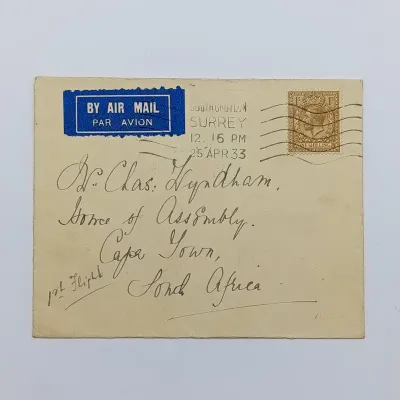 BY AIR MAIL
PAR AVION
SURREY
12. 15 PM
25 APR 33
ONE SHILLING
Chas: Wyndham.
House of Assembly.
Cape Town,
South Africa
1st Flight